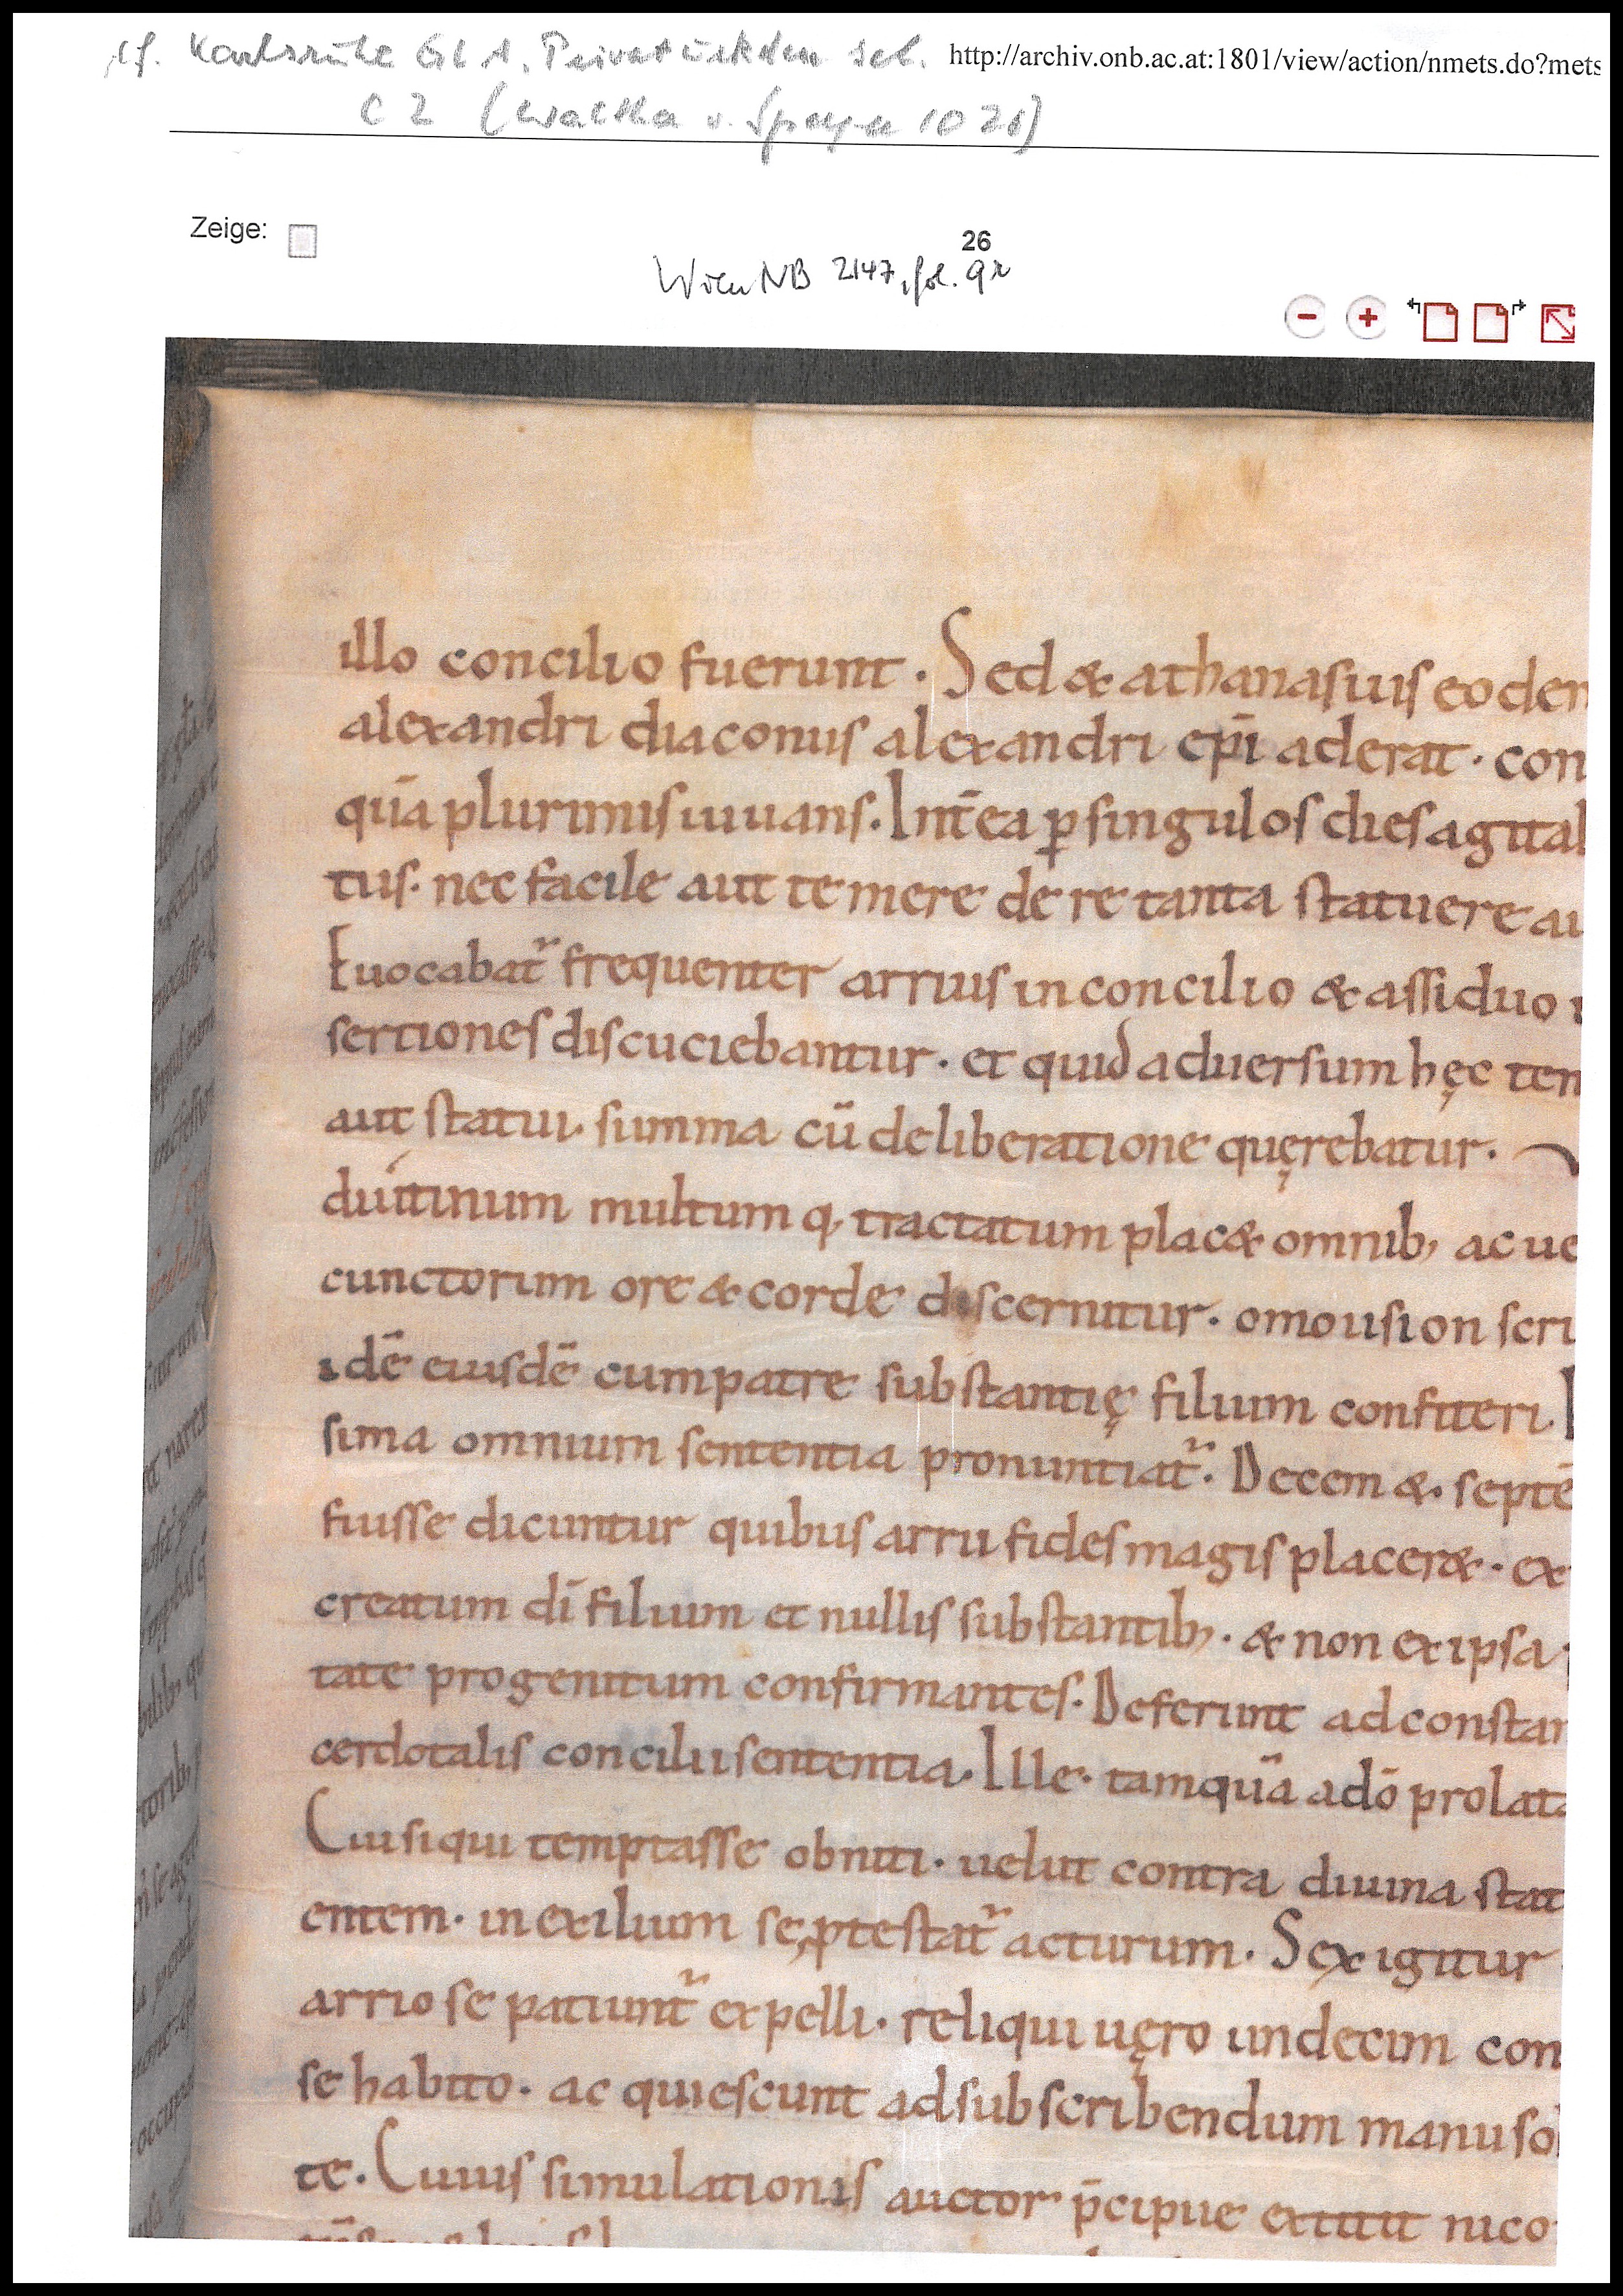 cf. Karlsruhe GLA, Privaturkden sel. http://archiv.onb.ac.at:1801/view/action/nmets.do?mets
C 2 (Walther v. Speyer 1021)
Zeige:
26
Wien NB 2147, fol. 9r
illo concilio fuerunt. Sed & athanasius eodem
alexandri diaconus alexandri epī aderat. con
quā plurimis iuuans. Int̄ea ꝑ singulos dies agital
tus. nec facile aut temere de re tanta statuere au
Euocabat᷑ frequenter arrius in concilio & assiduo
sertiones discuciebantur. et quid aduersum hęc ten
aut statui. summa cū deliberatione quęrebatur.
diutinum multum q, tractatum plac& omnib, ac ue
cunctorum ore & corde discernitur. omousion scri
idē eiusdē cum patre substantię filium confiteri. I
sima omnium sententia pronuntiat᷑. Decem &. septē
fuisse dicuntur quibus arrii fides magis placer&. ex
creatum dī filium et nullis substantib,. & non ex ipsa
tate progenitum confirmantes. Deferunt ad constan
cerdotalis concilii sententia. Ille. tamquā a dō prolata
Cui siqui temptasse obniti. uelut contra diuina stat
entem. in exilium se ꝓtestat᷑ acturum. Sex igitur
arrio se patiunt᷑ expelli. reliqui uęro undecim con
se habito. ac quiescunt ad subscribendum manu sol
te. Cuius simulationis auctor p̄cipue extitit nico